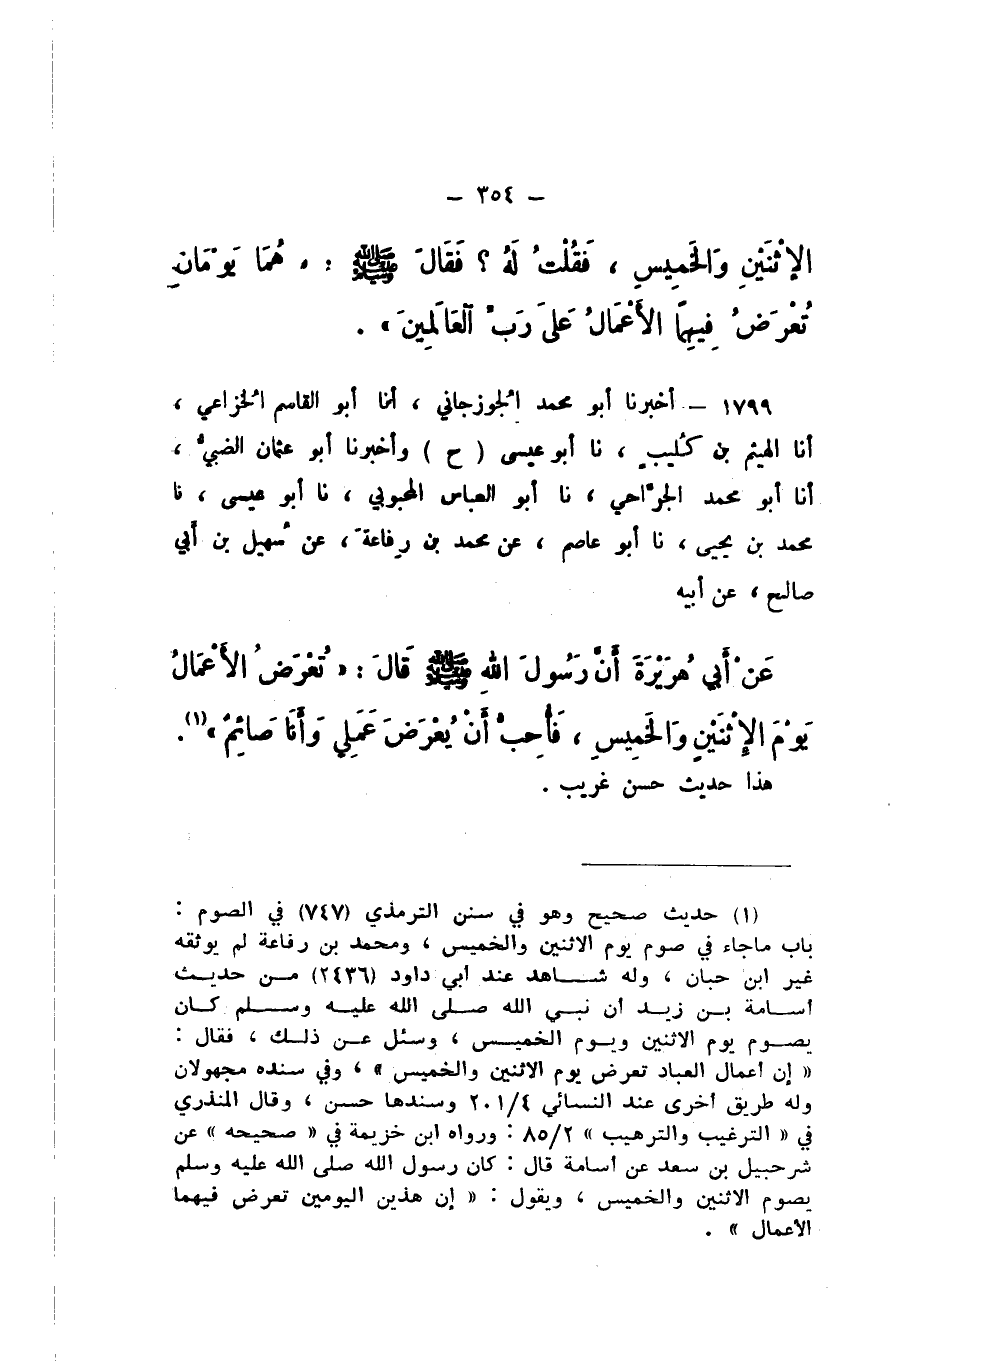 – ٣٥٤ –
الإثْنَيْنِ وَالخَمِيسِ ، فَقُلْتُ لَهُ ؟ فَقَالَ ﷺ : « هُمَا يَوْمَانِ
تُعْرَضُ فِيهِمَا الأَعْمَالُ عَلَى رَبِّ آلْعَالَمِينَ » .
١٧٩٩ – أخبرنا أبو محمد الجوزجاني ، أنا أبو القاسم الخزاعي ،
أنا الهيثم بن كُليب ، نا أبو عيسى ( ح ) وأخبرنا أبو عثمان الضبيُّ ،
أنا أبو محمد الجرَّاحي ، نا أبو العباس المحبوبي ، نا أبو عيسى ، نا
محمد بن يحيى ، نا أبو عاصم ، عن محمد بن رِفاعةَ ، عن سُهيل بن أبي
صالح ، عن أبيه
عَنْ أَبِي هُرَيْرَةَ أَنَّ رَسُولَ اللهِ ﷺ قَالَ : « تُعْرَضُ الأَعْمَالُ
يَوْمَ الإِثْنَيْنِ وَالخَمِيسِ ، فَأُحِبُّ أَنْ يُعْرَضَ عَمَلِي وَأَنَا صَائِمٌ »(١).
هذا حديث حسن غريب .
(١) حديث صحيح وهو في سنن الترمذي (٧٤٧) في الصوم :
باب ماجاء في صوم يوم الاثنين والخميس ، ومحمد بن رفاعة لم يوثقه
غير ابن حبان ، وله شاهد عند أبي داود (٢٤٣٦) من حديث
أسامة بن زيد أن نبي الله صلى الله عليه وسلم كان
يصوم يوم الاثنين ويوم الخميس ، وسئل عن ذلك ، فقال :
« إن أعمال العباد تعرض يوم الاثنين والخميس » ، وفي سنده مجهولان
وله طريق أخرى عند النسائي ٢٠١/٤ وسندها حسن ، وقال المنذري
في « الترغيب والترهيب » ٨٥/٢ : ورواه ابن خزيمة في « صحيحه » عن
شرحبيل بن سعد عن أسامة قال : كان رسول الله صلى الله عليه وسلم
يصوم الاثنين والخميس ، ويقول : « إن هذين اليومين تعرض فيهما
الأعمال » .